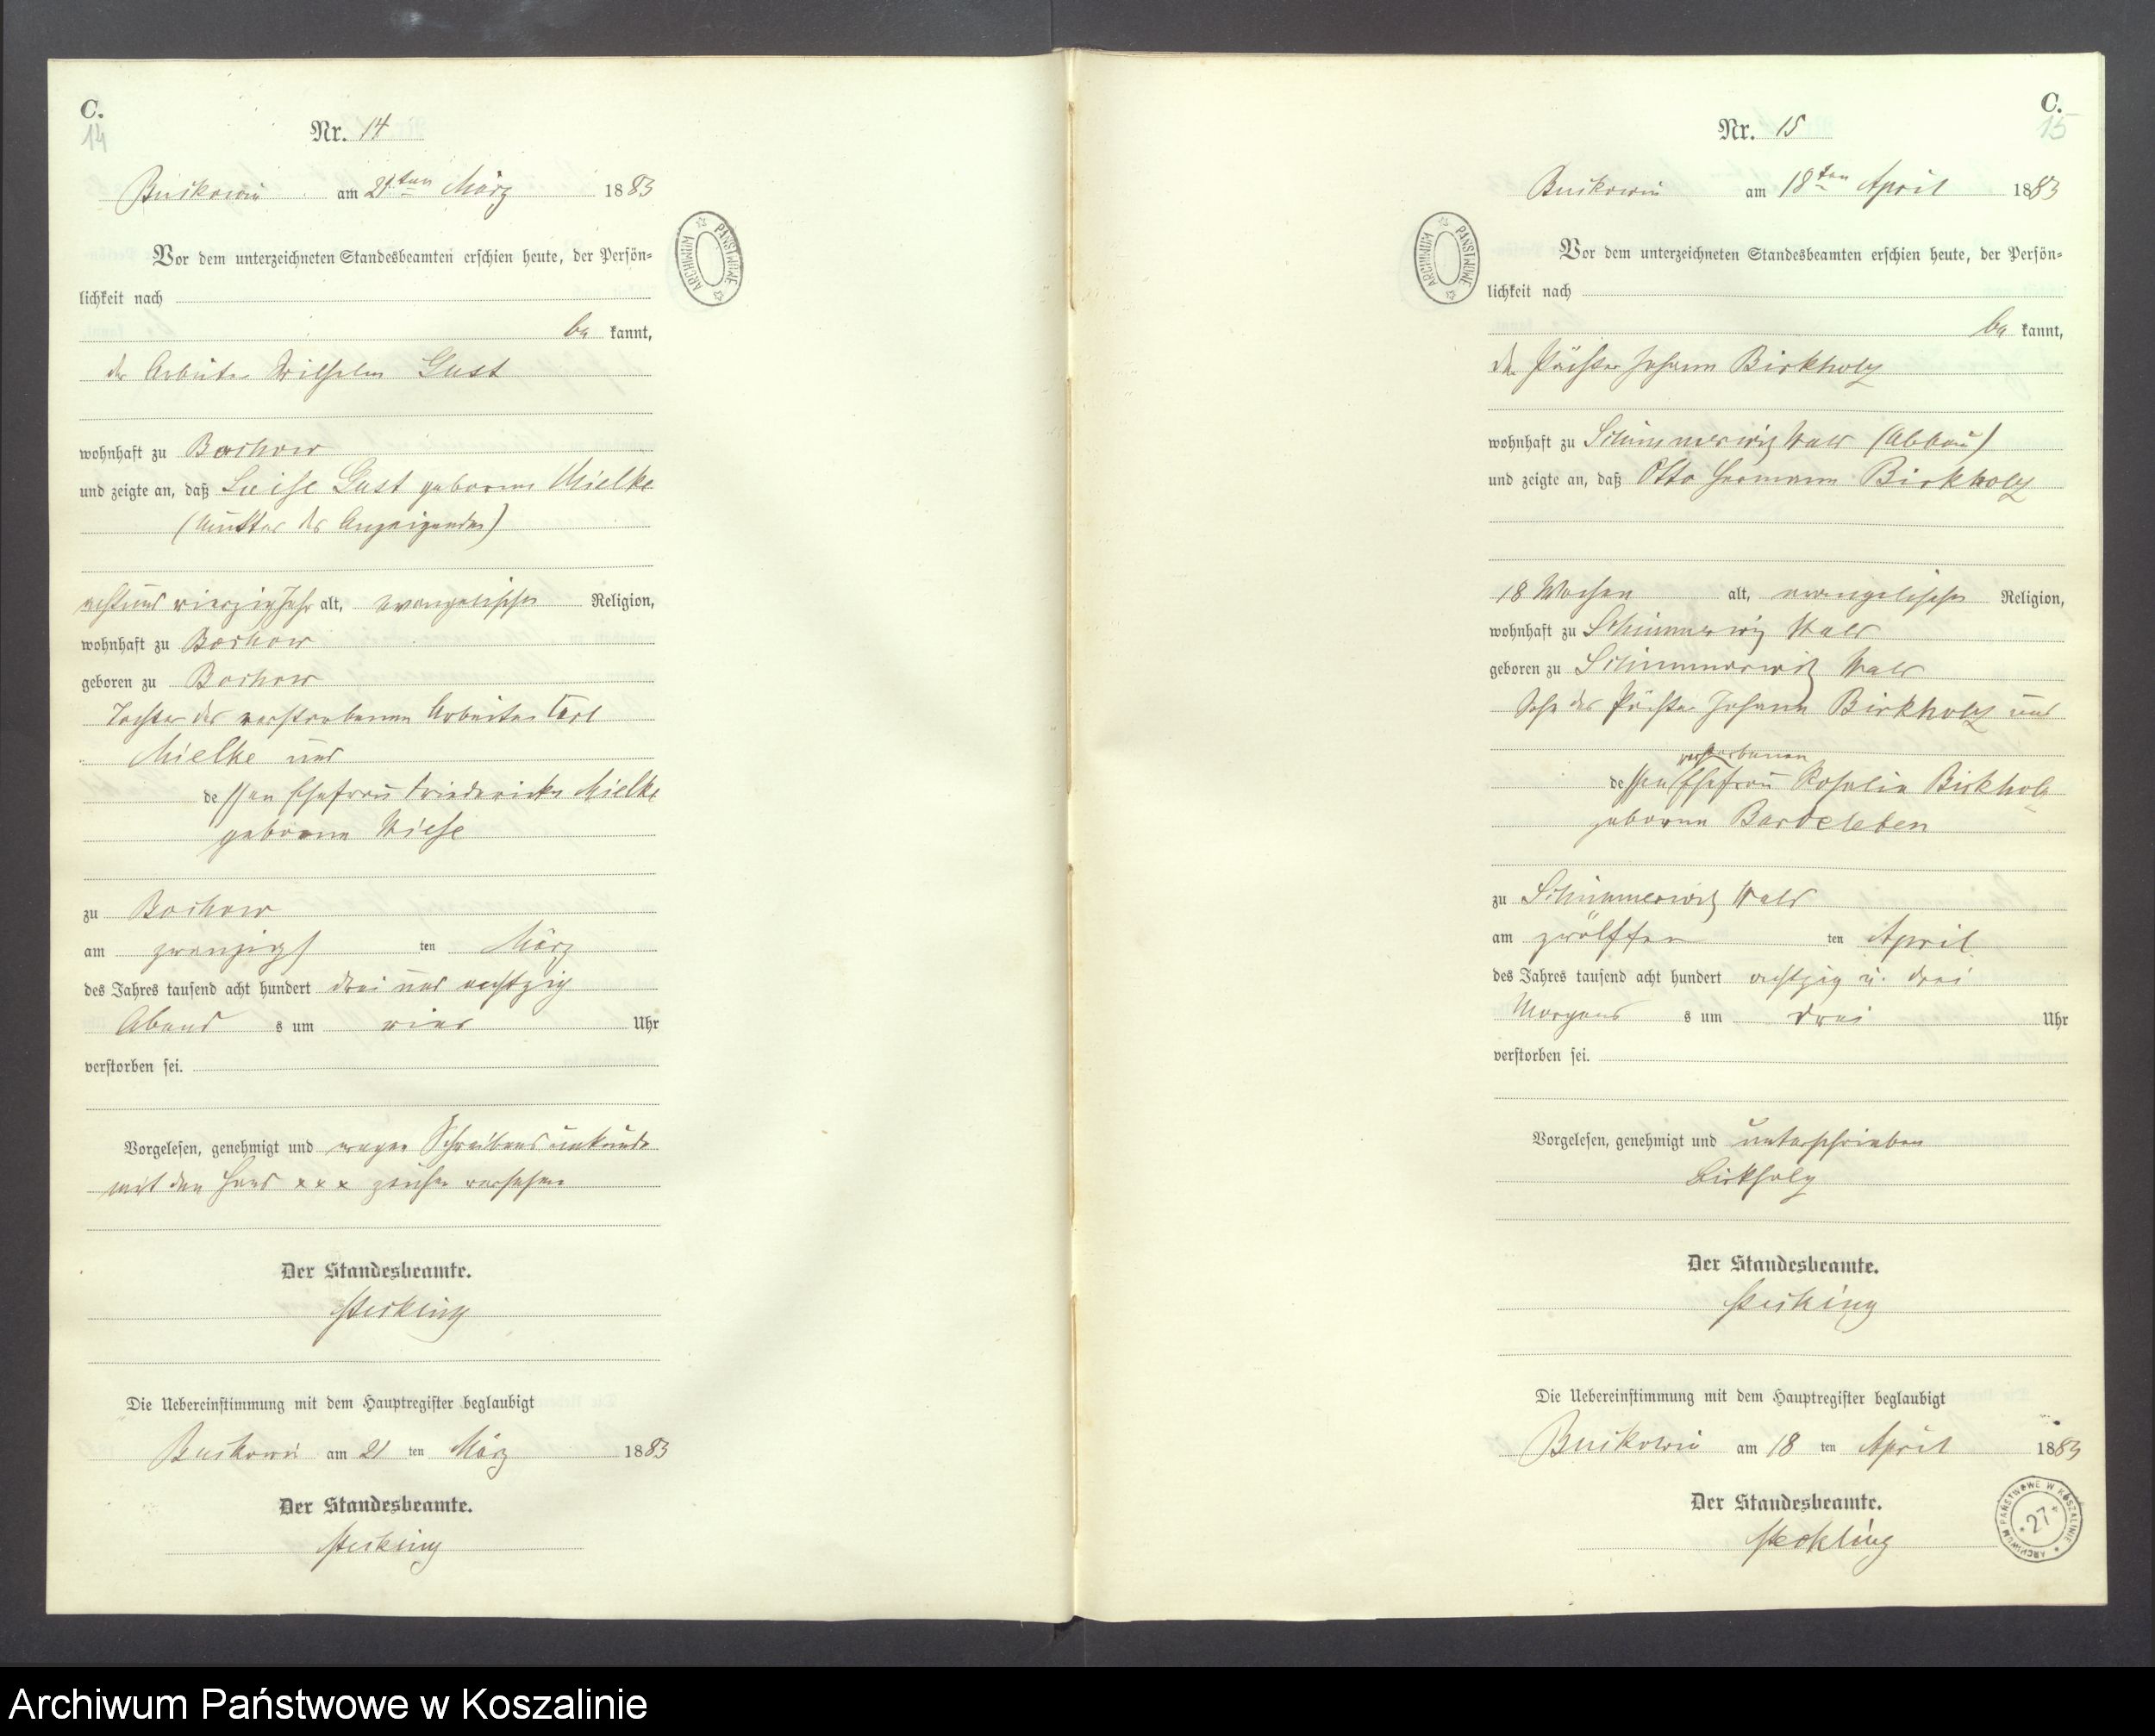 C.
14
Nr. 14
Buckowin am 21ten März 1883
Vor dem unterzeichneten Standesbeamten erschien heute, der Persön-
lichkeit nach
be kannt,
der Arbeiter Wilhelm Gust
wohnhaft zu Bochow
und zeigte an, daß Luise Gust geborene Mielke
(Mutter des Anzeigenden)
achtund vierzig Jahr alt, evangelischer Religion,
wohnhaft zu Bochow
geboren zu Bochow
Tochter des verstorbenen Arbeiter Carl
Mielke und
dessen Ehefrau Friedericke Mielke
geborene Wiese
zu Bochow
am zwanzigs ten März
des Jahres tausend acht hundert drei und achtzig
Abend s um vier Uhr
verstorben sei.
Vorgelesen, genehmigt und wegen Schreibensunkunde
mit den Hand x x x zeichen versehen
Der Standesbeamte.
Die Uebereinstimmung mit dem Hauptregister beglaubigt
Buckowin am 21 ten März 1883
Der Standesbeamte.
C.
15
Nr. 15
Buckowin am 18ten April 1883
Vor dem unterzeichneten Standesbeamten erschien heute, der Persön-
lichkeit nach
be kannt,
der Pächter Johann Birkholz
wohnhaft zu Schimmerwitz Wald (Abbau)
und zeigte an, daß Otto Hermann Birkholz
18 Wochen alt, evangelischer Religion,
wohnhaft zu Schimmerwitz Wald
geboren zu Schimmerwitz Wald
Sohn des Pächter Johann Birkholz und
verstorbenen
dessen Ehefrau Rosalie Birkholz
geborene Bardeleben
zu Schimmerwitz Wald
am zwölften ten April
des Jahres tausend acht hundert achtzig u. drei
Morgens s um drei Uhr
verstorben sei.
Vorgelesen, genehmigt und unterschrieben
Birkholz
Der Standesbeamte.
Die Uebereinstimmung mit dem Hauptregister beglaubigt
Buckowin am 18 ten April 1883
Der Standesbeamte.
ARCHIWUM PAŃSTWOWE
ARCHIWUM PAŃSTWOWE
ARCHIWUM PAŃSTWOWE W KOSZALINIE
27
Archiwum Państwowe w Koszalinie